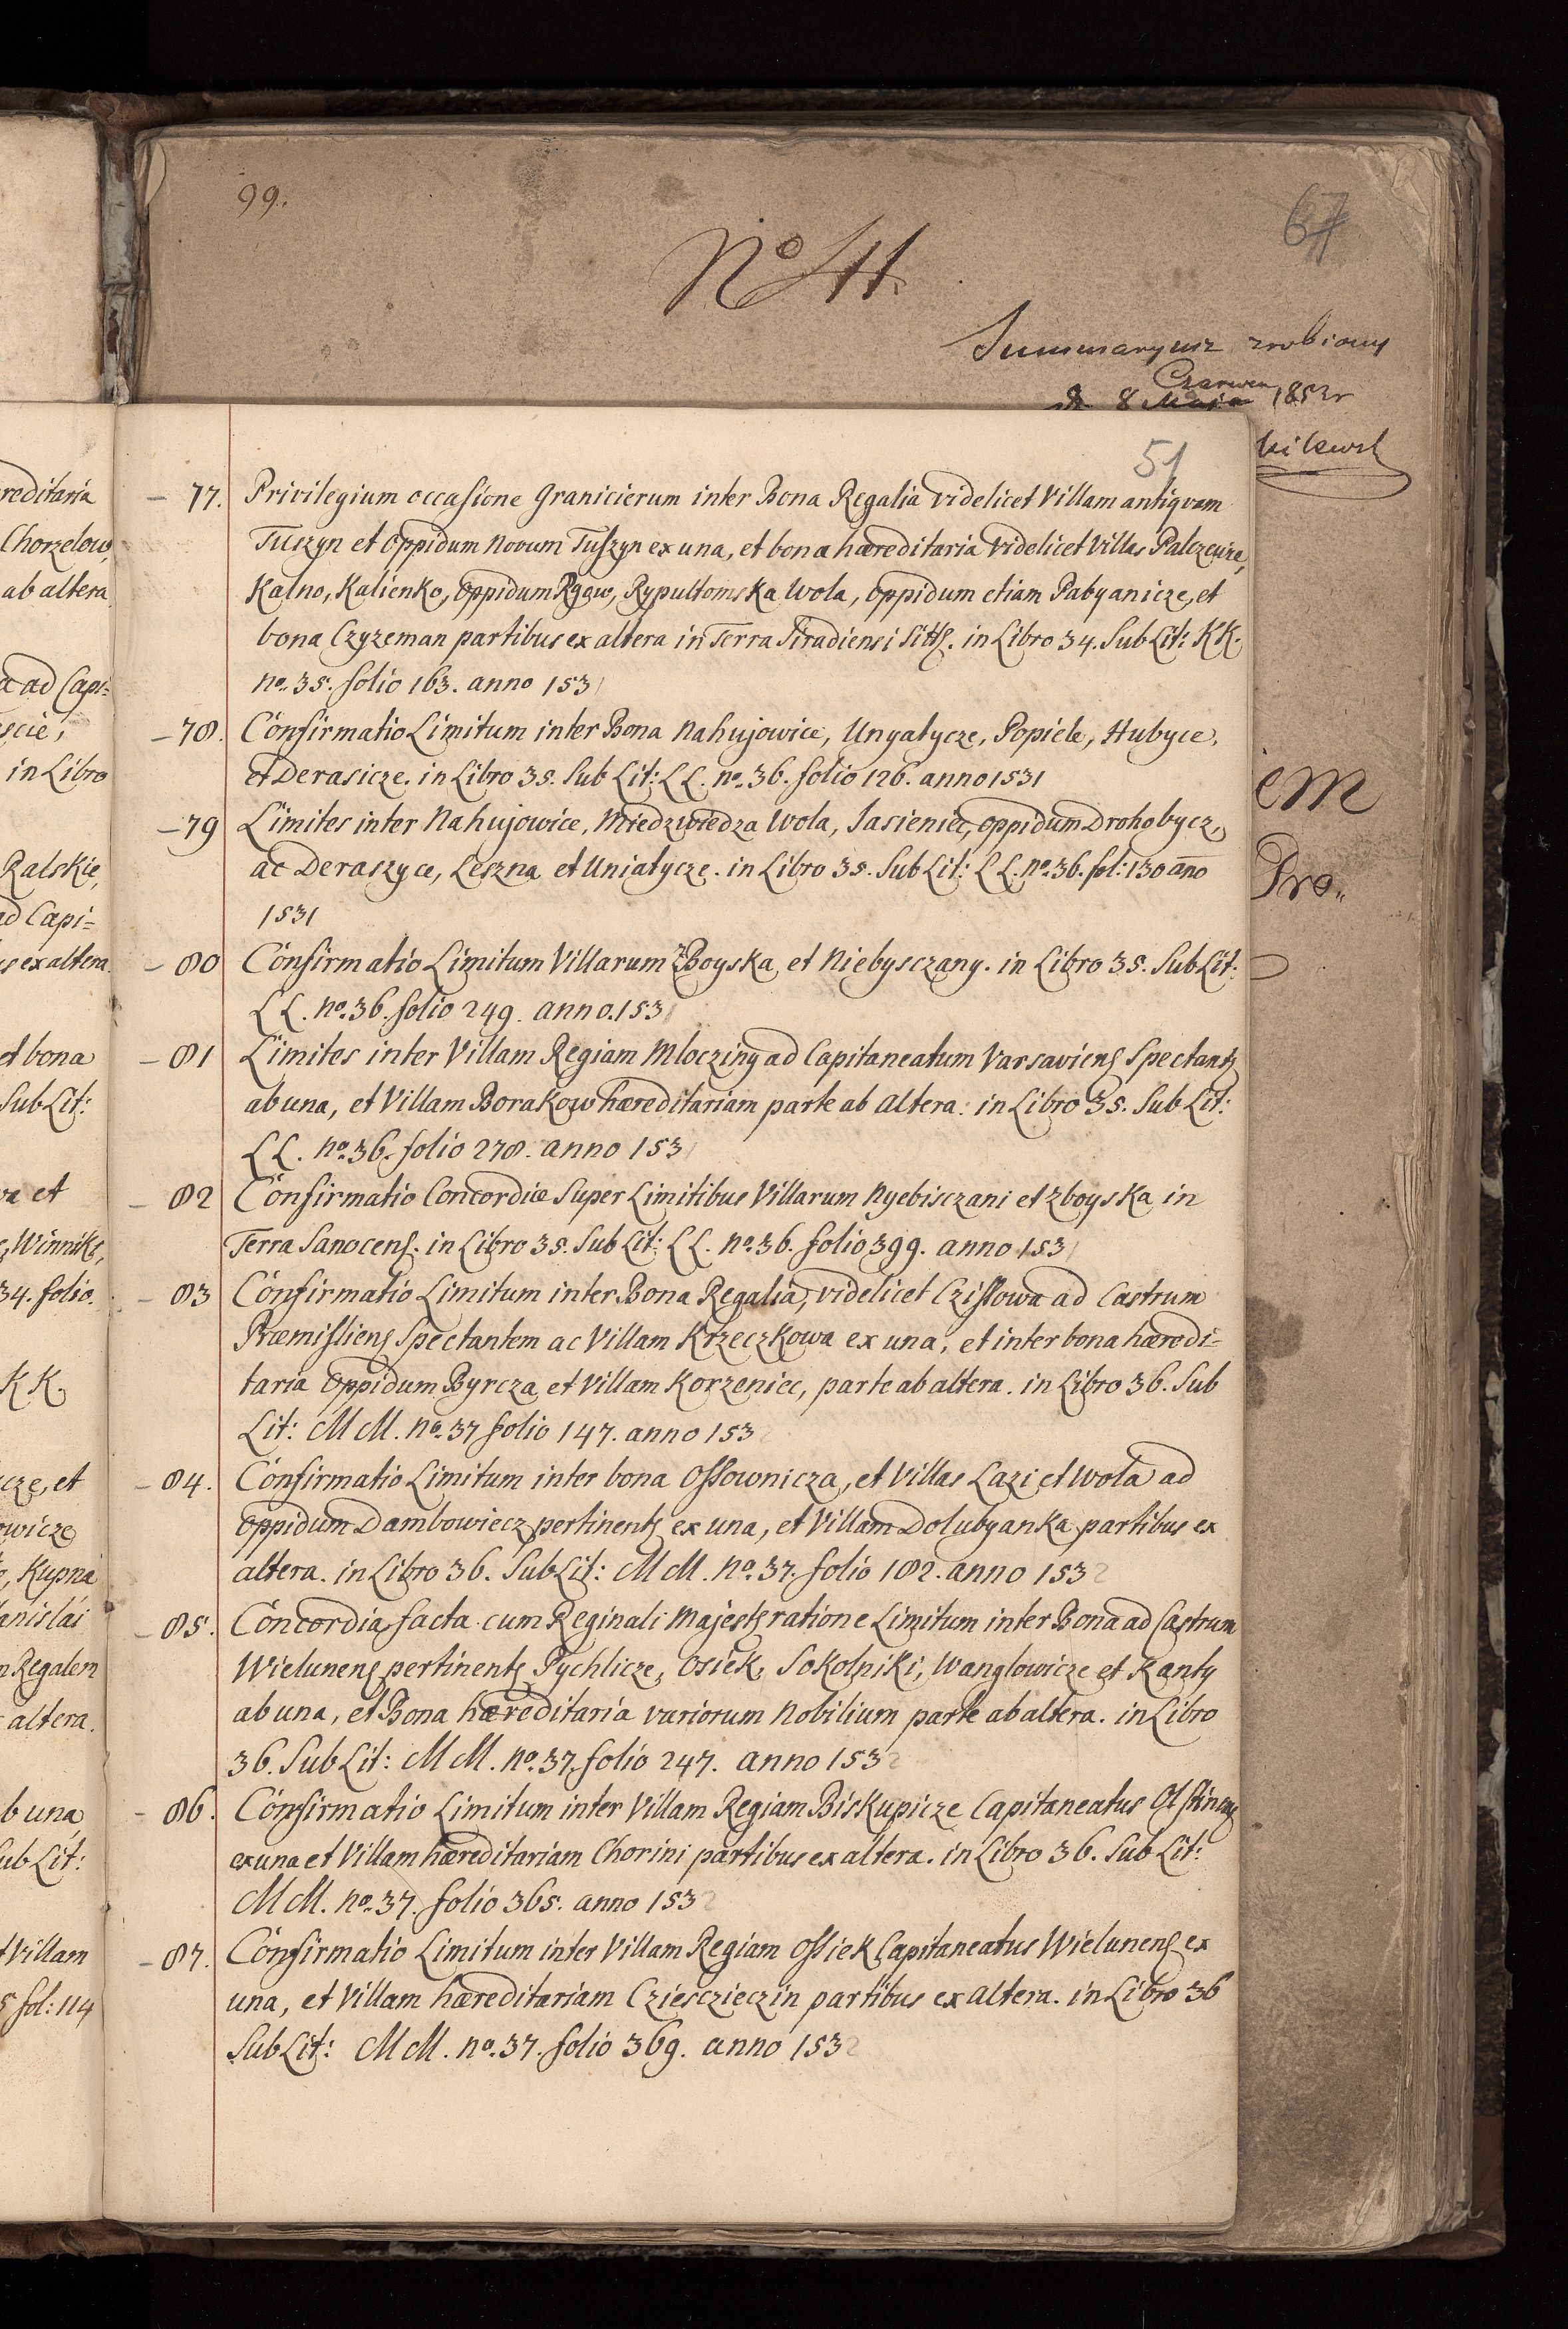 99.
67
No 44.
Summaryusz zrobiony
Czerwca
d. 8 Maja 1852r
51
em
Pro.
reditaria
Chorzelow,
ab altera
a ad Capi-
scie,
in Libro
Ralskie,
ad Capi=
is ex altera
et bona
Sub Lit:
va et
Winniki,
34. folio.
KK.
cze, et
owicze
, Kupna
anislai
m Regalem
altera.
b una
Sub Lit:
t Villam
5 fol: 114
– 77. Privilegium occasione Granicierum inter Bona Regalia videlicet Villam antiquam
Tuszyn et Oppidum Novum Tuszyn ex una, et bona hæreditaria videlicet Villas Palczewice,
Kalno, Kalienko, Oppidum Rgow, Rypultowska Wola, Oppidum etiam Pabyanicze, et
bona Czyzeman partibus ex altera in Terra Siradiensi Sitts. in Libro 34. Sub Lit: KK.
no. 35. folio 163. anno 1531
– 78. Confirmatio Limitum inter Bona Nahujowice, Unyatycze, Popiele, Hubyce,
et Derasicze. in Libro 35. Sub Lit: LL. no. 36. folio 126. anno 1531
– 79 Limites inter Nahujowice, Miedzwiedza Wola, Jasieniec, Oppidum Drohobycz,
ac Deraszyce, Leszna et Uniatycze. in Libro 35. Sub Lit: LL. no. 36. fol: 130 ano
1531
– 80 Confirmatio Limitum Villarum ZBoyska, et Niebysczany. in Libro 35. Sub Lit:
LL. no. 36. folio 249. anno. 1531
– 81 Limites inter Villam Regiam Mloczing ad Capitaneatum Varsaviens Spectants
ab una, et Villam Borakow hæreditariam parte ab altera. in Libro 35. Sub Lit:
LL. no. 36. folio 278. anno 1531
– 82 Confirmatio Concordiæ Super Limitibus Villarum Nyebisczani et Zboyska in
Terra Sanocens. in Libro 35. Sub Lit: LL. no. 36. folio 399. anno 1531
– 83 Confirmatio Limitum inter Bona Regalia, videlicet Czissowa ad Castrum
Præmisliens Spectantem ac Villam Krzeczkowa ex una, et inter bona hæredi=
taria Oppidum Byrcza et Villam Korzeniec, parte ab altera. in Libro 36. Sub
Lit: MM. no. 37 folio 147. anno 1532
– 84. Confirmatio Limitum inter bona Ossownicza, et Villas Lazi et Wola ad
Oppidum Dambowiecz pertinents ex una, et Villam Dolubyanka partibus ex
altera. in Libro 36. Sub Lit: MM. no. 37. folio 182. anno 1532
– 85. Concordia facta cum Reginali Majests ratione Limitum inter Bona ad Castrum
Wielunens pertinents Pychlicze, Osiek, Sokolniki, Wanglowicze et Kanty
ab una, et Bona hæreditaria variorum Nobilium parte ab altera. in Libro
36. Sub Lit: MM. no. 37. folio 247. anno 1532
– 86. Confirmatio Limitum inter Villam Regiam Biskupicze Capitaneatus Olstinens
ex una et Villam hæreditariam Chorini partibus ex altera. in Libro 36. Sub Lit:
MM. no. 37. folio 365. anno 1532
– 87. Confirmatio Limitum inter Villam Regiam Ossiek Capitaneatus Wielunens ex
una, et Villam hæreditariam Cziesczieczin partibus ex altera. in Libro 36
Sub Lit: MM. no. 37. folio 369. anno 1532